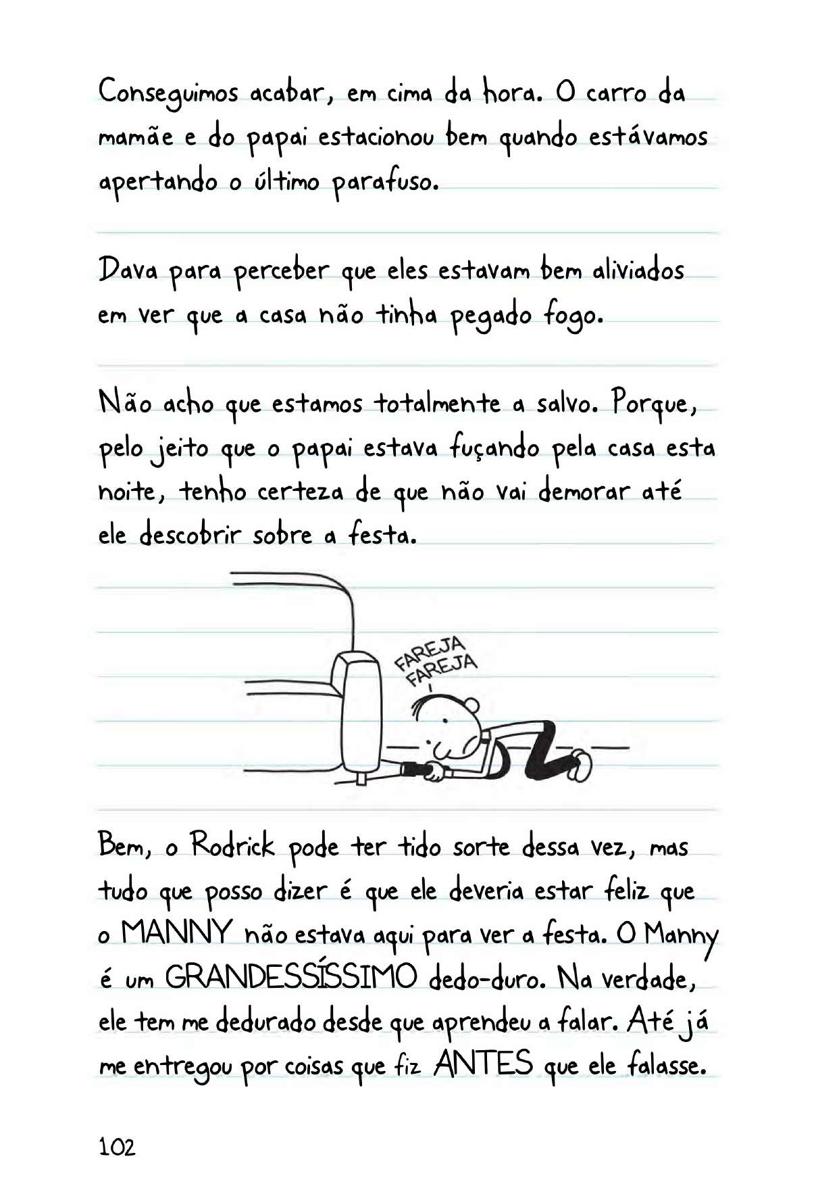 Conseguimos acabar, em cima da hora. O carro da
mamãe e do papai estacionou bem quando estávamos
apertando o último parafuso.
Dava para perceber que eles estavam bem aliviados
em ver que a casa não tinha pegado fogo.
Não acho que estamos totalmente a salvo. Porque,
pelo jeito que o papai estava fuçando pela casa esta
noite, tenho certeza de que não vai demorar até
ele descobrir sobre a festa.
FAREJA
FAREJA
Bem, o Rodrick pode ter tido sorte dessa vez, mas
tudo que posso dizer é que ele deveria estar feliz que
o MANNY não estava aqui para ver a festa. O Manny
é um GRANDESSÍSSIMO dedo-duro. Na verdade,
ele tem me dedurado desde que aprendeu a falar. Até já
me entregou por coisas que fiz ANTES que ele falasse.
102